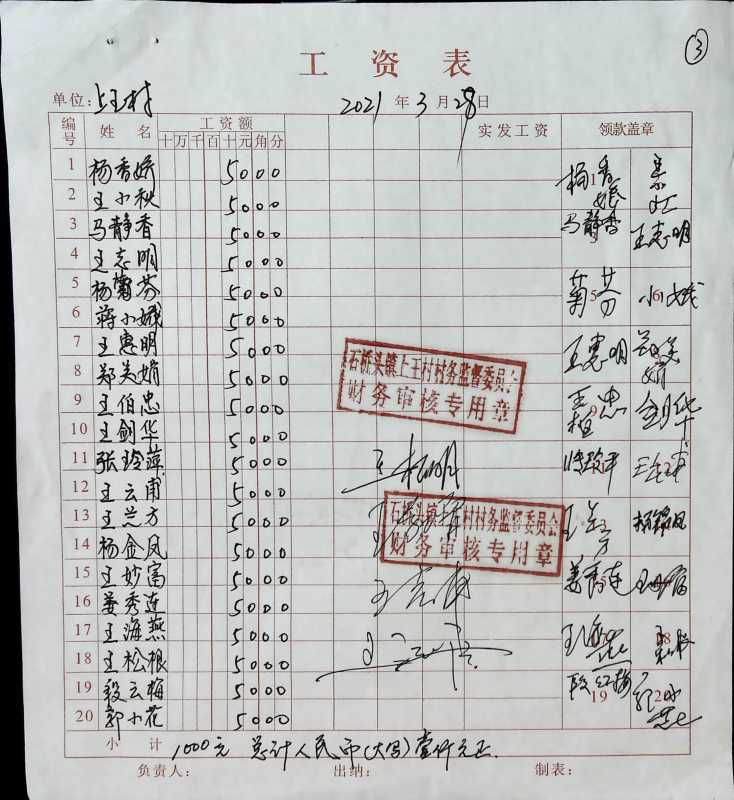 ③
工资表
单位：上王村 2021年3月28日
编号 姓名 工资额 实发工资 领款盖章
十万千百十元角分
1 杨香娇 5000 杨香娘
2 王小秋 5000
3 马静香 5000 马静香
4 王志明 5000 王志明
5 杨菊芬 5000 菊芬
6 蒋小娥 5000 小娥
7 王惠明 5000 王惠明
8 郑美娟 5000 郑美娟
9 王伯忠 5000 王柏忠
10 王剑华 5000 剑华
11 张玲萍 5000
12 王云甫 5000
13 王兰方 5000 王兰方
14 杨金凤 5000
15 王妙富 5000 王妙富
16 姜秀连 5000 姜秀连
17 王海燕 5000 王海燕
18 王松根 5000
19 段云梅 5000 段红梅
20 郭小花 5000
石桥头镇上王村村务监督委员会
财务审核专用章
石桥头镇 村村务监督委员会
财务审核专用章
小计 1000元 总计人民币(大写)壹仟元正.
负责人： 出纳： 制表：